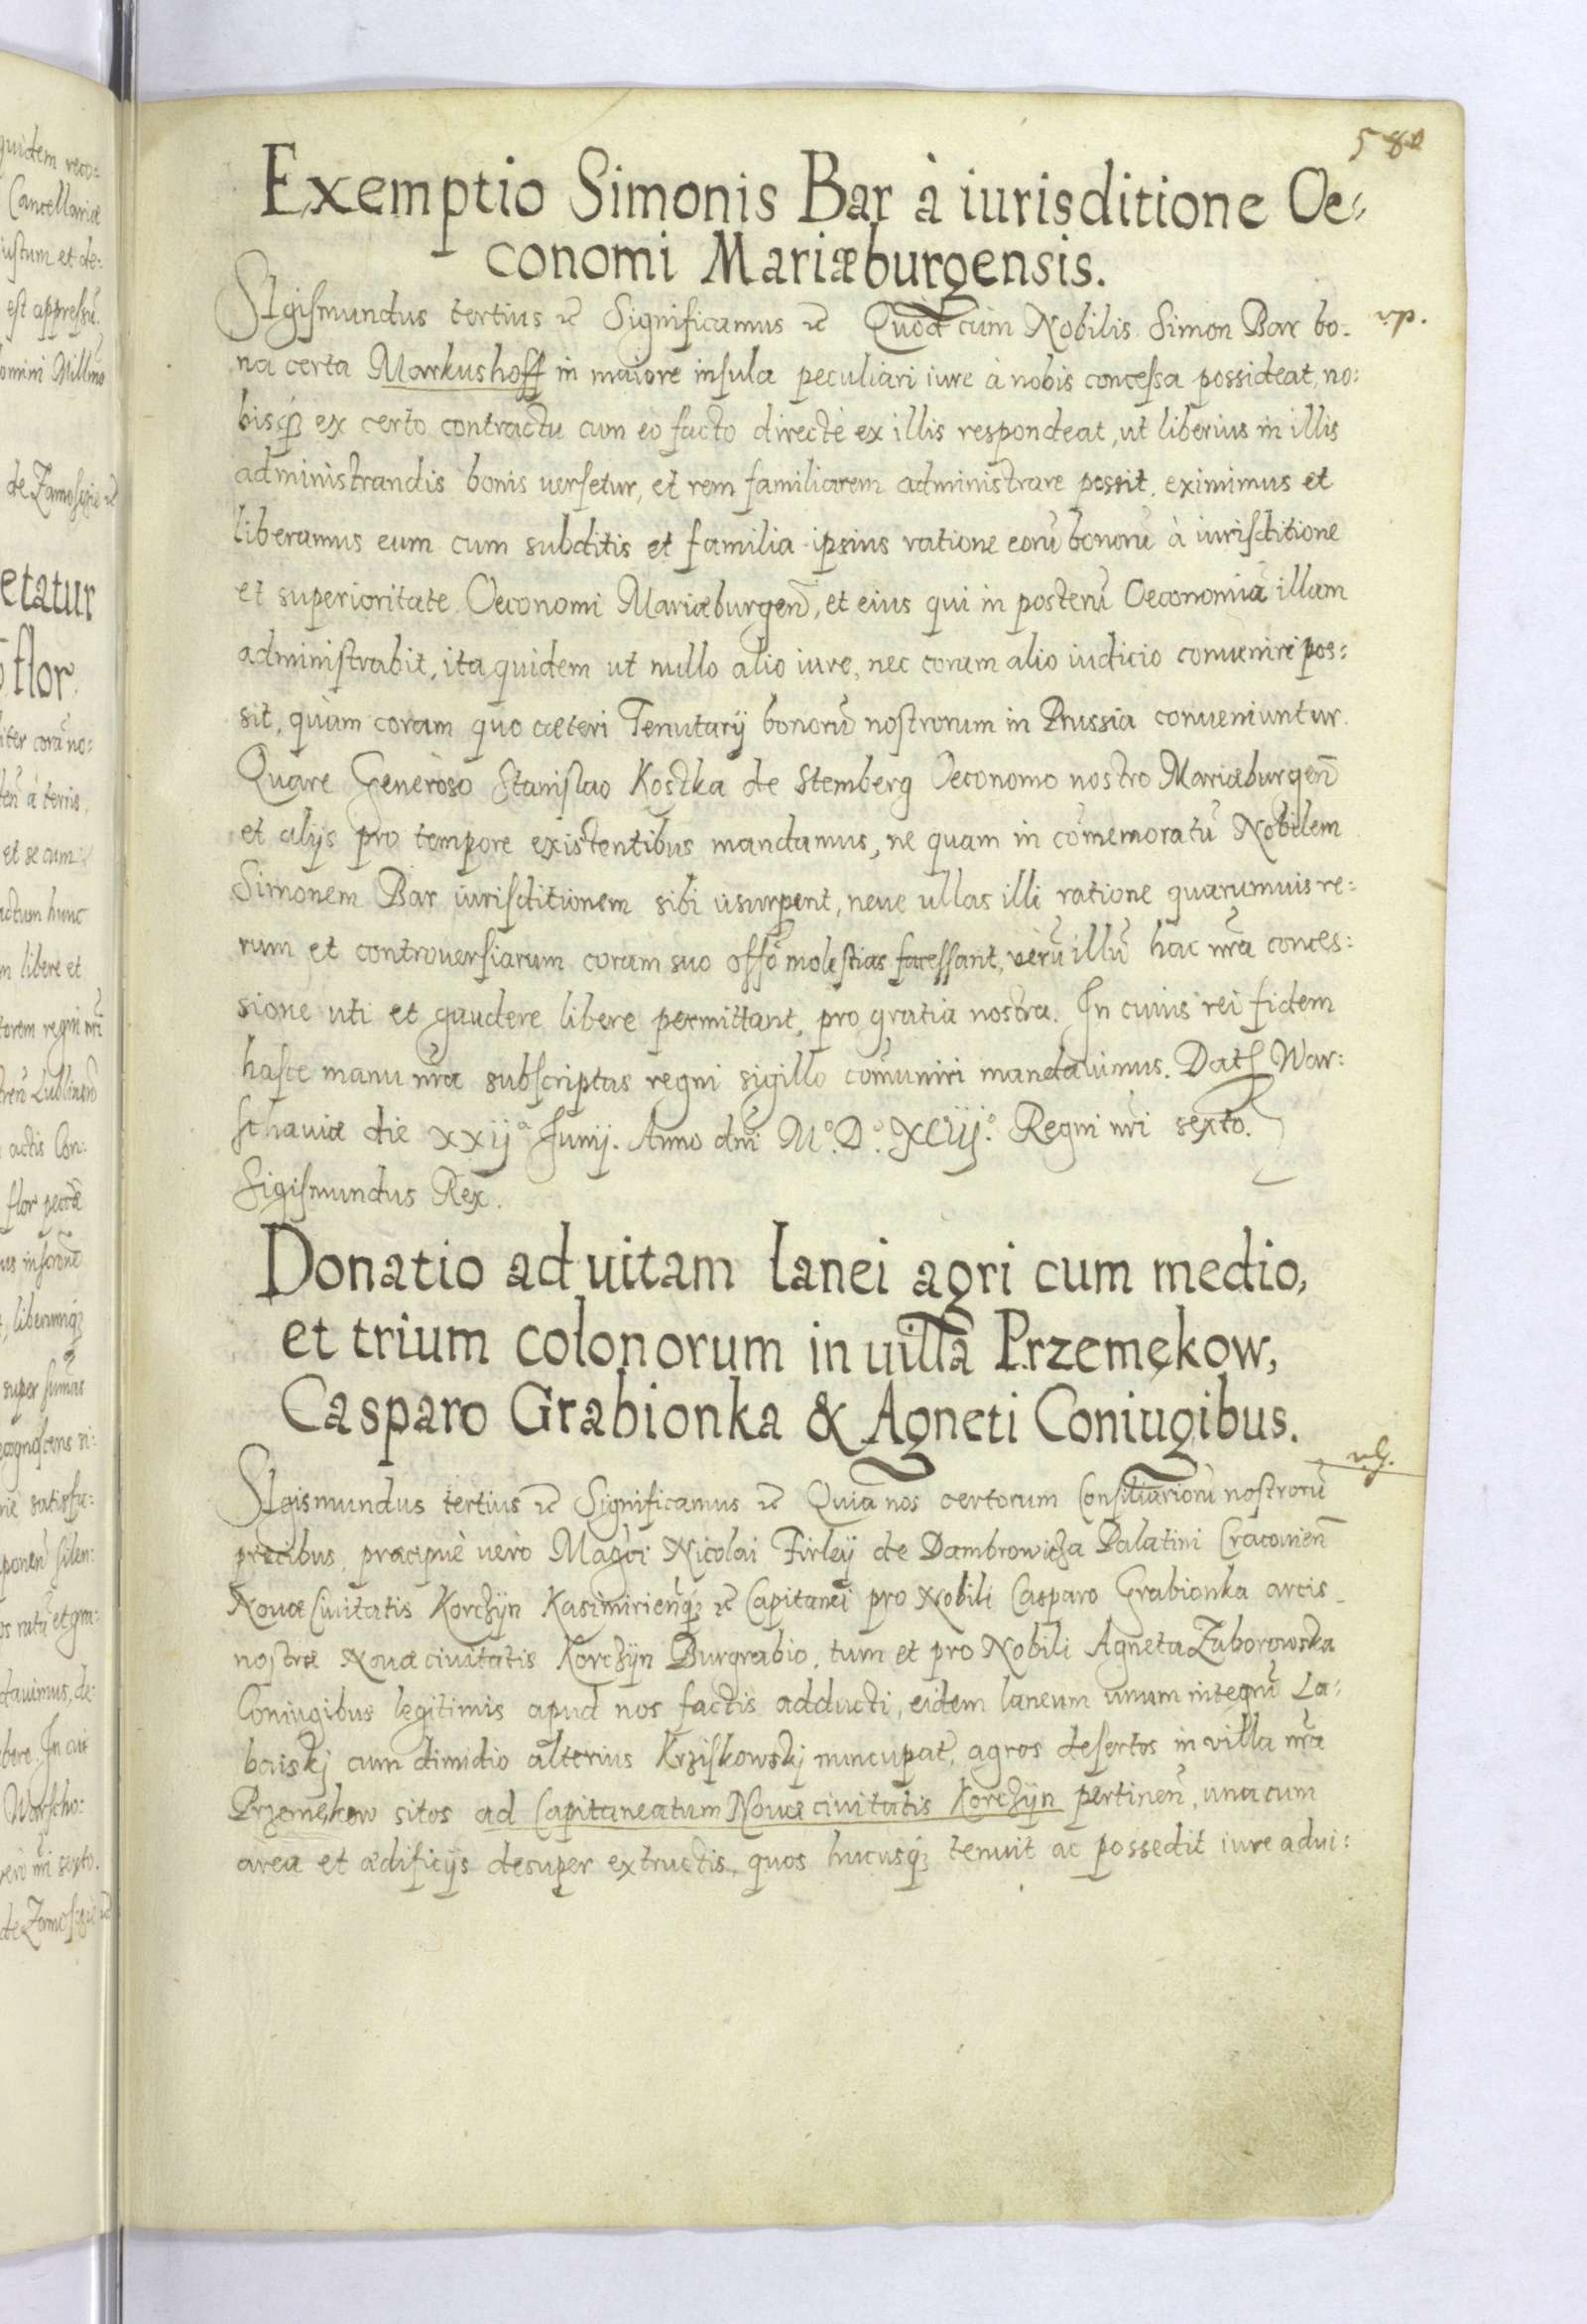 580
Exemptio Simonis Bar à iurisditione Oe=
conomi Mariæburgensis.
SIgismundus tertius etc Significamus etc Quòd cùm Nobilis Simon Bar bo=
vp.
na certa Markushoff in maiore insula peculiari iure à nobis concessa possideat, no:
bisq3 ex certo contractu cum eo facto directè ex illis respondeat, ut liberius in illis
administrandis bonis uersetur, et rem familiarem administrare possit, eximimus et
liberamus eum cum subditis et familia ipsius ratione eorū bonorū à iurisditione
et superioritate Oeconomi Mariæburgen̄, et eius qui in posterū Oeconomiā illam
administrabit, ita quidem ut nullo alio iure, nec coram alio iudicio conueniri pos:
sit, quàm coram quo cæteri Tenutarij bonorū nostrorum in Prussia conueniuntur.
Quare Generoso Stanislao Kostka de Stemberg Oeconomo nostro Mariæburgen̄
et alijs pro tempore existentibus mandamus, ne quam in cōmemoratū Nobilem
Simonem Bar iurisditionem sibi usurpent, neue ullas illi ratione quarumuis re:
rum et controuersiarum coram suo offō molestias facessant, verū illū hac nr̄a conces:
sione uti et gaudere libere permittant, pro gratia nostra. In cuius rei fidem
hasce manu nr̄a subscriptas regni sigillo cōmuniri mandauimus. Dat War:
schauiæ die xxijª Junij. Anno dn̄i M°. D°. XCiij°. Regni nr̄i sexto.
Sigismundus Rex.
Donatio ad uitam lanei agri cum medio,
et trium colonorum in uilla Przemękow,
Casparo Grabionka & Agneti Coniugibus.
SIgismundus tertius etc Significamus etc Quia nos certorum Consiliariorū nostrorū
precibus, præcipuè uerò Mag̃ci Nicolai Firleÿ de Dambrowicza Palatini Cracouien̄
Nouæ Ciuitatis Korczÿn Kasimirien̄q3 etc Capitanei pro Nobili Casparo Grabionka arcis
nostræ Nouæ ciuitatis Korczÿn Burgrabio, tum et pro Nobili Agneta Zaborowska
Coniugibus legitimis apud nos factis adducti, eidem laneum unum integrū La:
baiskj cum dimidio alterius Krziskowskj nuncupat̄, agros desertos in villa nr̄a
Przemękow sitos ad Capitaneatum Nouæ ciuitatis Korczÿn pertinen̄, una cum
area et ædificijs desuper extructis, quos hucusq3 tenuit ac possedit iure ad ui: